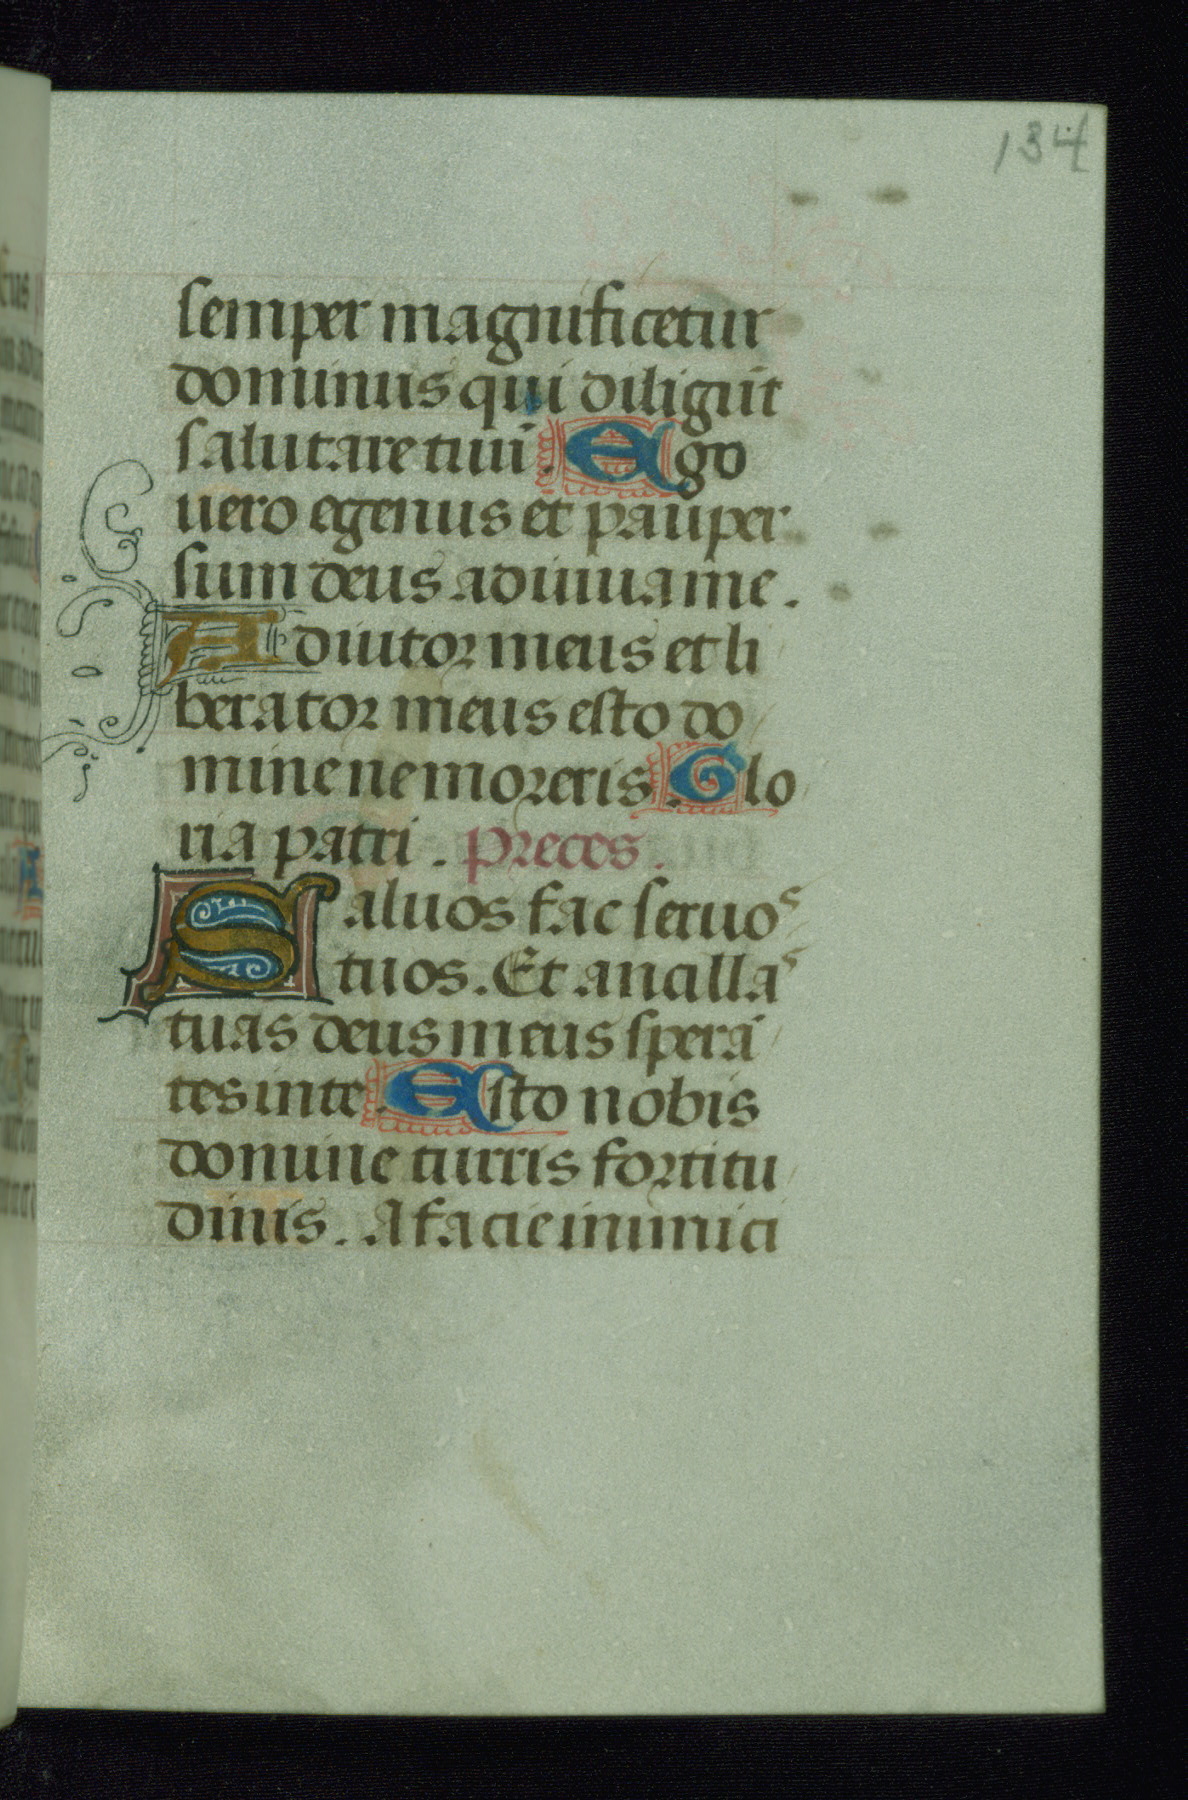 134
semper magnificetur
dominus qui diligūt
salutare tuū. Ego
uero egenus et pauper
sum deus adiuua me.
Adiutor meus et li
berator meus esto do
mine ne moreris. Glo
ria patri. Preces.
Saluos fac seruos
tuos. Et ancillas
tuas deus meus sperā
tes in te. Esto nobis
domine turris fortitu
dinis. A facie inimici